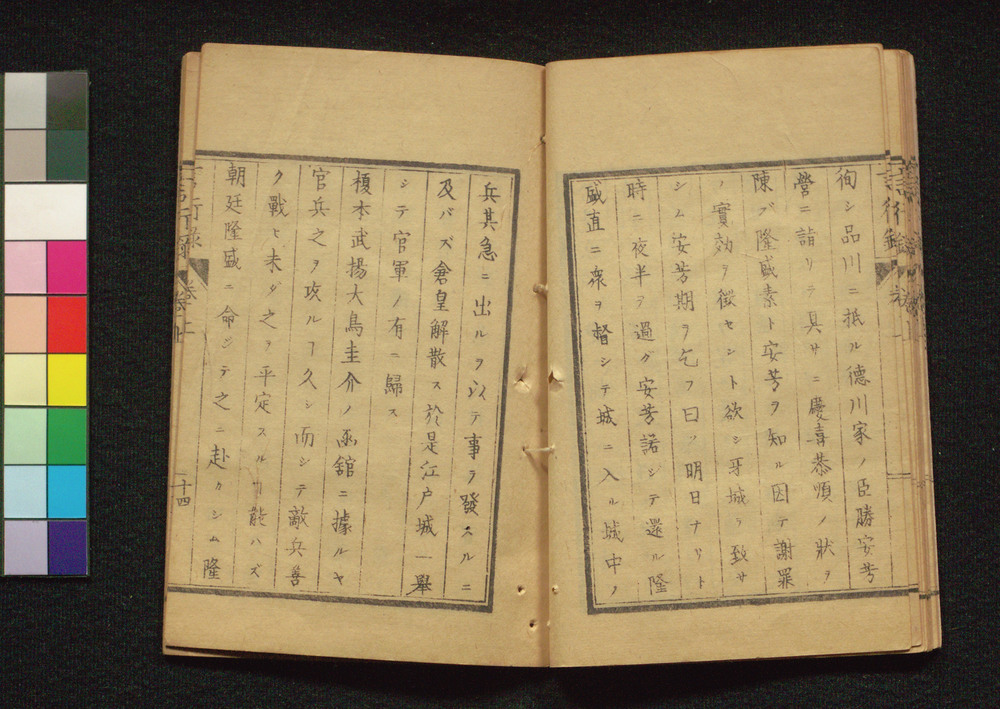 徇シ品川ニ抵ル德川家ノ臣勝安芳
營ニ詣リテ具サニ慶喜恭順ノ狀ヲ
陳ブ隆盛素ト安芳ヲ知ル因テ謝罪
ノ實効ヲ徴セント欲シ牙城ヲ致サ
シム安芳期ヲ乞フ曰ク明日ナリト
時ニ夜半ヲ過グ安芳諾シテ還ル隆
盛直ニ衆ヲ督シテ城ニ入ル城中ノ
兵其急ニ出ルヲ以テ事ヲ發スルニ
及バズ倉皇解散ス於是江戸城一舉
シテ官軍ノ有ニ歸ス
榎本武揚大鳥圭介ノ函舘ニ據ルヤ
官兵之ヲ攻ルヿ久シ而シテ敵兵善
ク戰ヒ未ダ之ヲ平定スルヿ能ハズ
朝廷隆盛ニ命ジテ之ニ赴カシム隆
言行録 卷上
十四